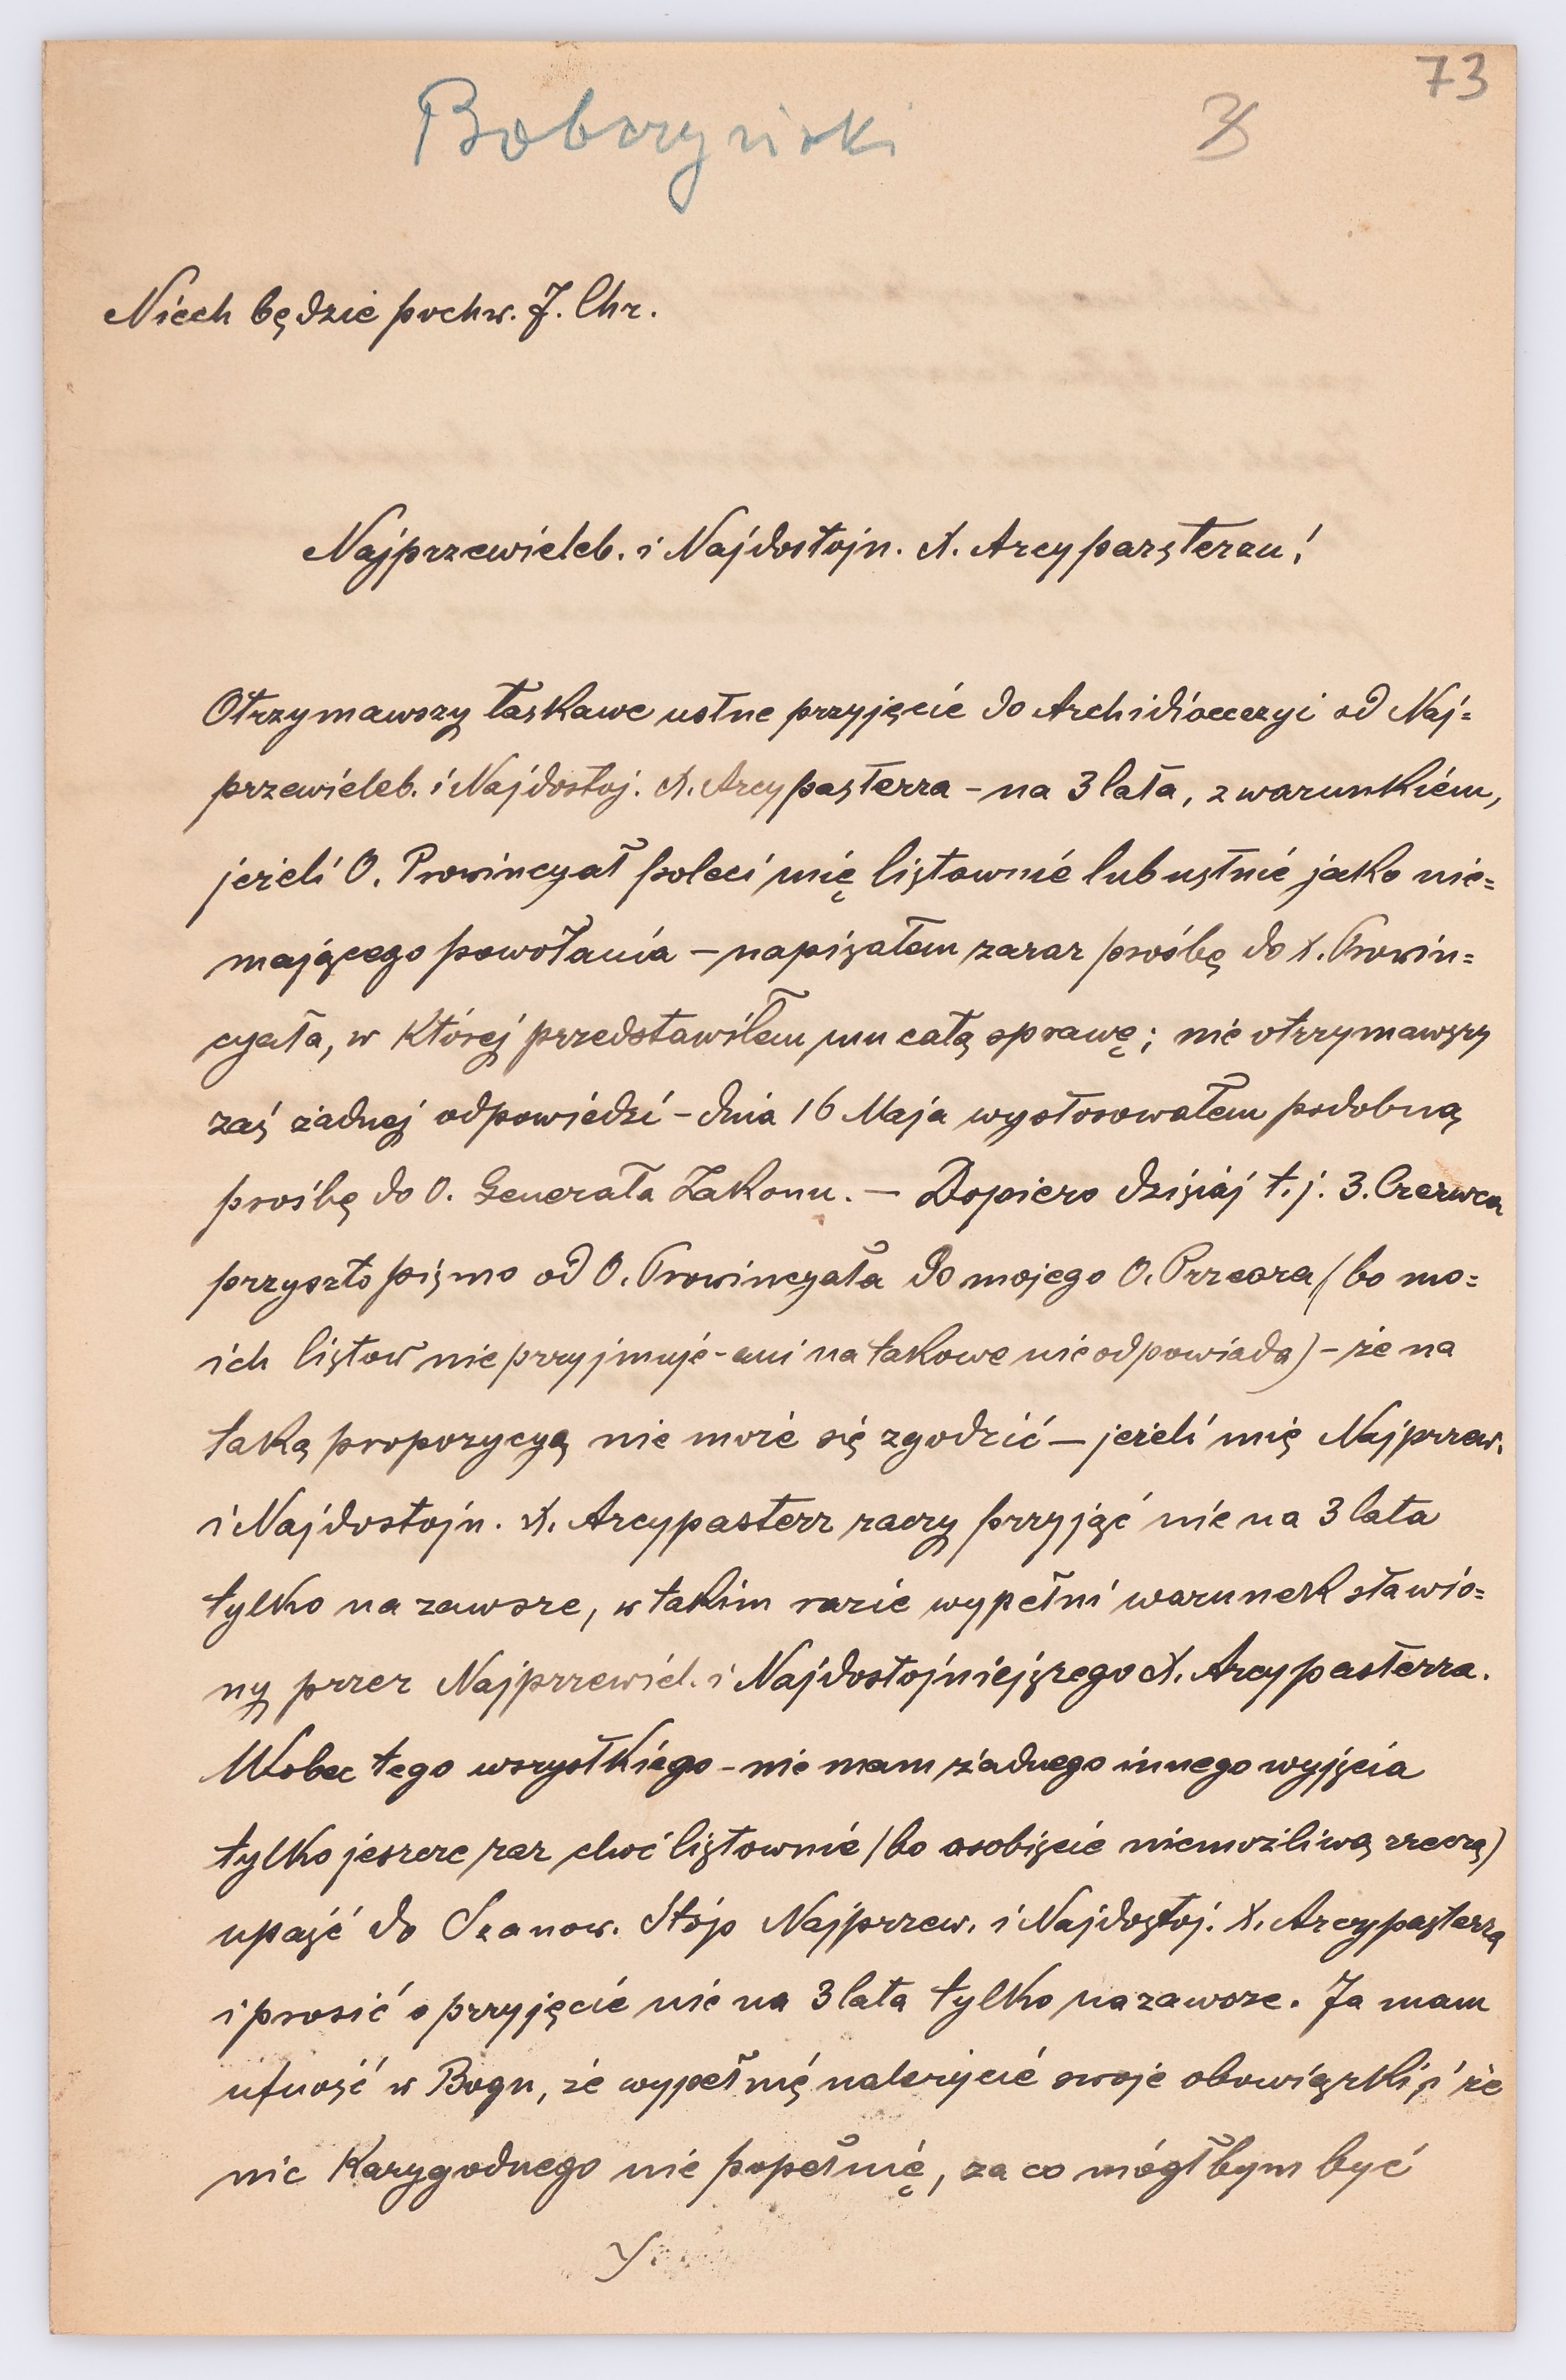 73
Bobrzyński
Niech będzie pochw. J. Chr.
Najprzewieleb. i Najdostojn. X. Arcypasterzu!
Otrzymawszy łaskawe ustne przyjęcie do Archidiecezyi od Naj=
przewieleb. i Najdostoj. X. Arcypasterza – na 3 lata, z warunkiem,
jeżeli O. Prowincyał poleci mię listownie lub ustnie jako nie=
mającego powołania – napisałem zaraz prośbę do X. Prowin=
cyała, w której przedstawiłem mu całą sprawę; nie otrzymawszy
zaś żadnej odpowiedzi – dnia 16 Maja wystosowałem podobną
prośbę do O. Generała Zakonu. – Dopiero dzisiaj t. j. 3. Czerwca
przyszło pismo od O. Prowincyała do mojego O. Przeora (bo mo=
ich listow nie przyjmuje – ani na takowe nie odpowiada) – że na
taką propozycyą nie może się zgodzić – jeżeli mię Najprzew.
i Najdostojn. X. Arcypasterz raczy przyjąć nie na 3 lata
tylko na zawsze, w takim razie wypełni warunek stawio=
ny przez Najprzewiel. i Najdostojniejszego X. Arcypasterza.
Wobec tego wszystkiego – nie mam żadnego innego wyjścia
tylko jeszcze raz choć listownie (bo osobiście niemożliwą rzeczą)
upaść do Szanow. Stóp Najprzew. i Najdostoj. X. Arcypasterza
i prosić o przyjęcie nie na 3 lata tylko na zawsze. Ja mam
ufność w Bogu, że wypełnię należycie swoje obowiązki, i że
nic karygodnego nie popełnię, za co mógłbym być